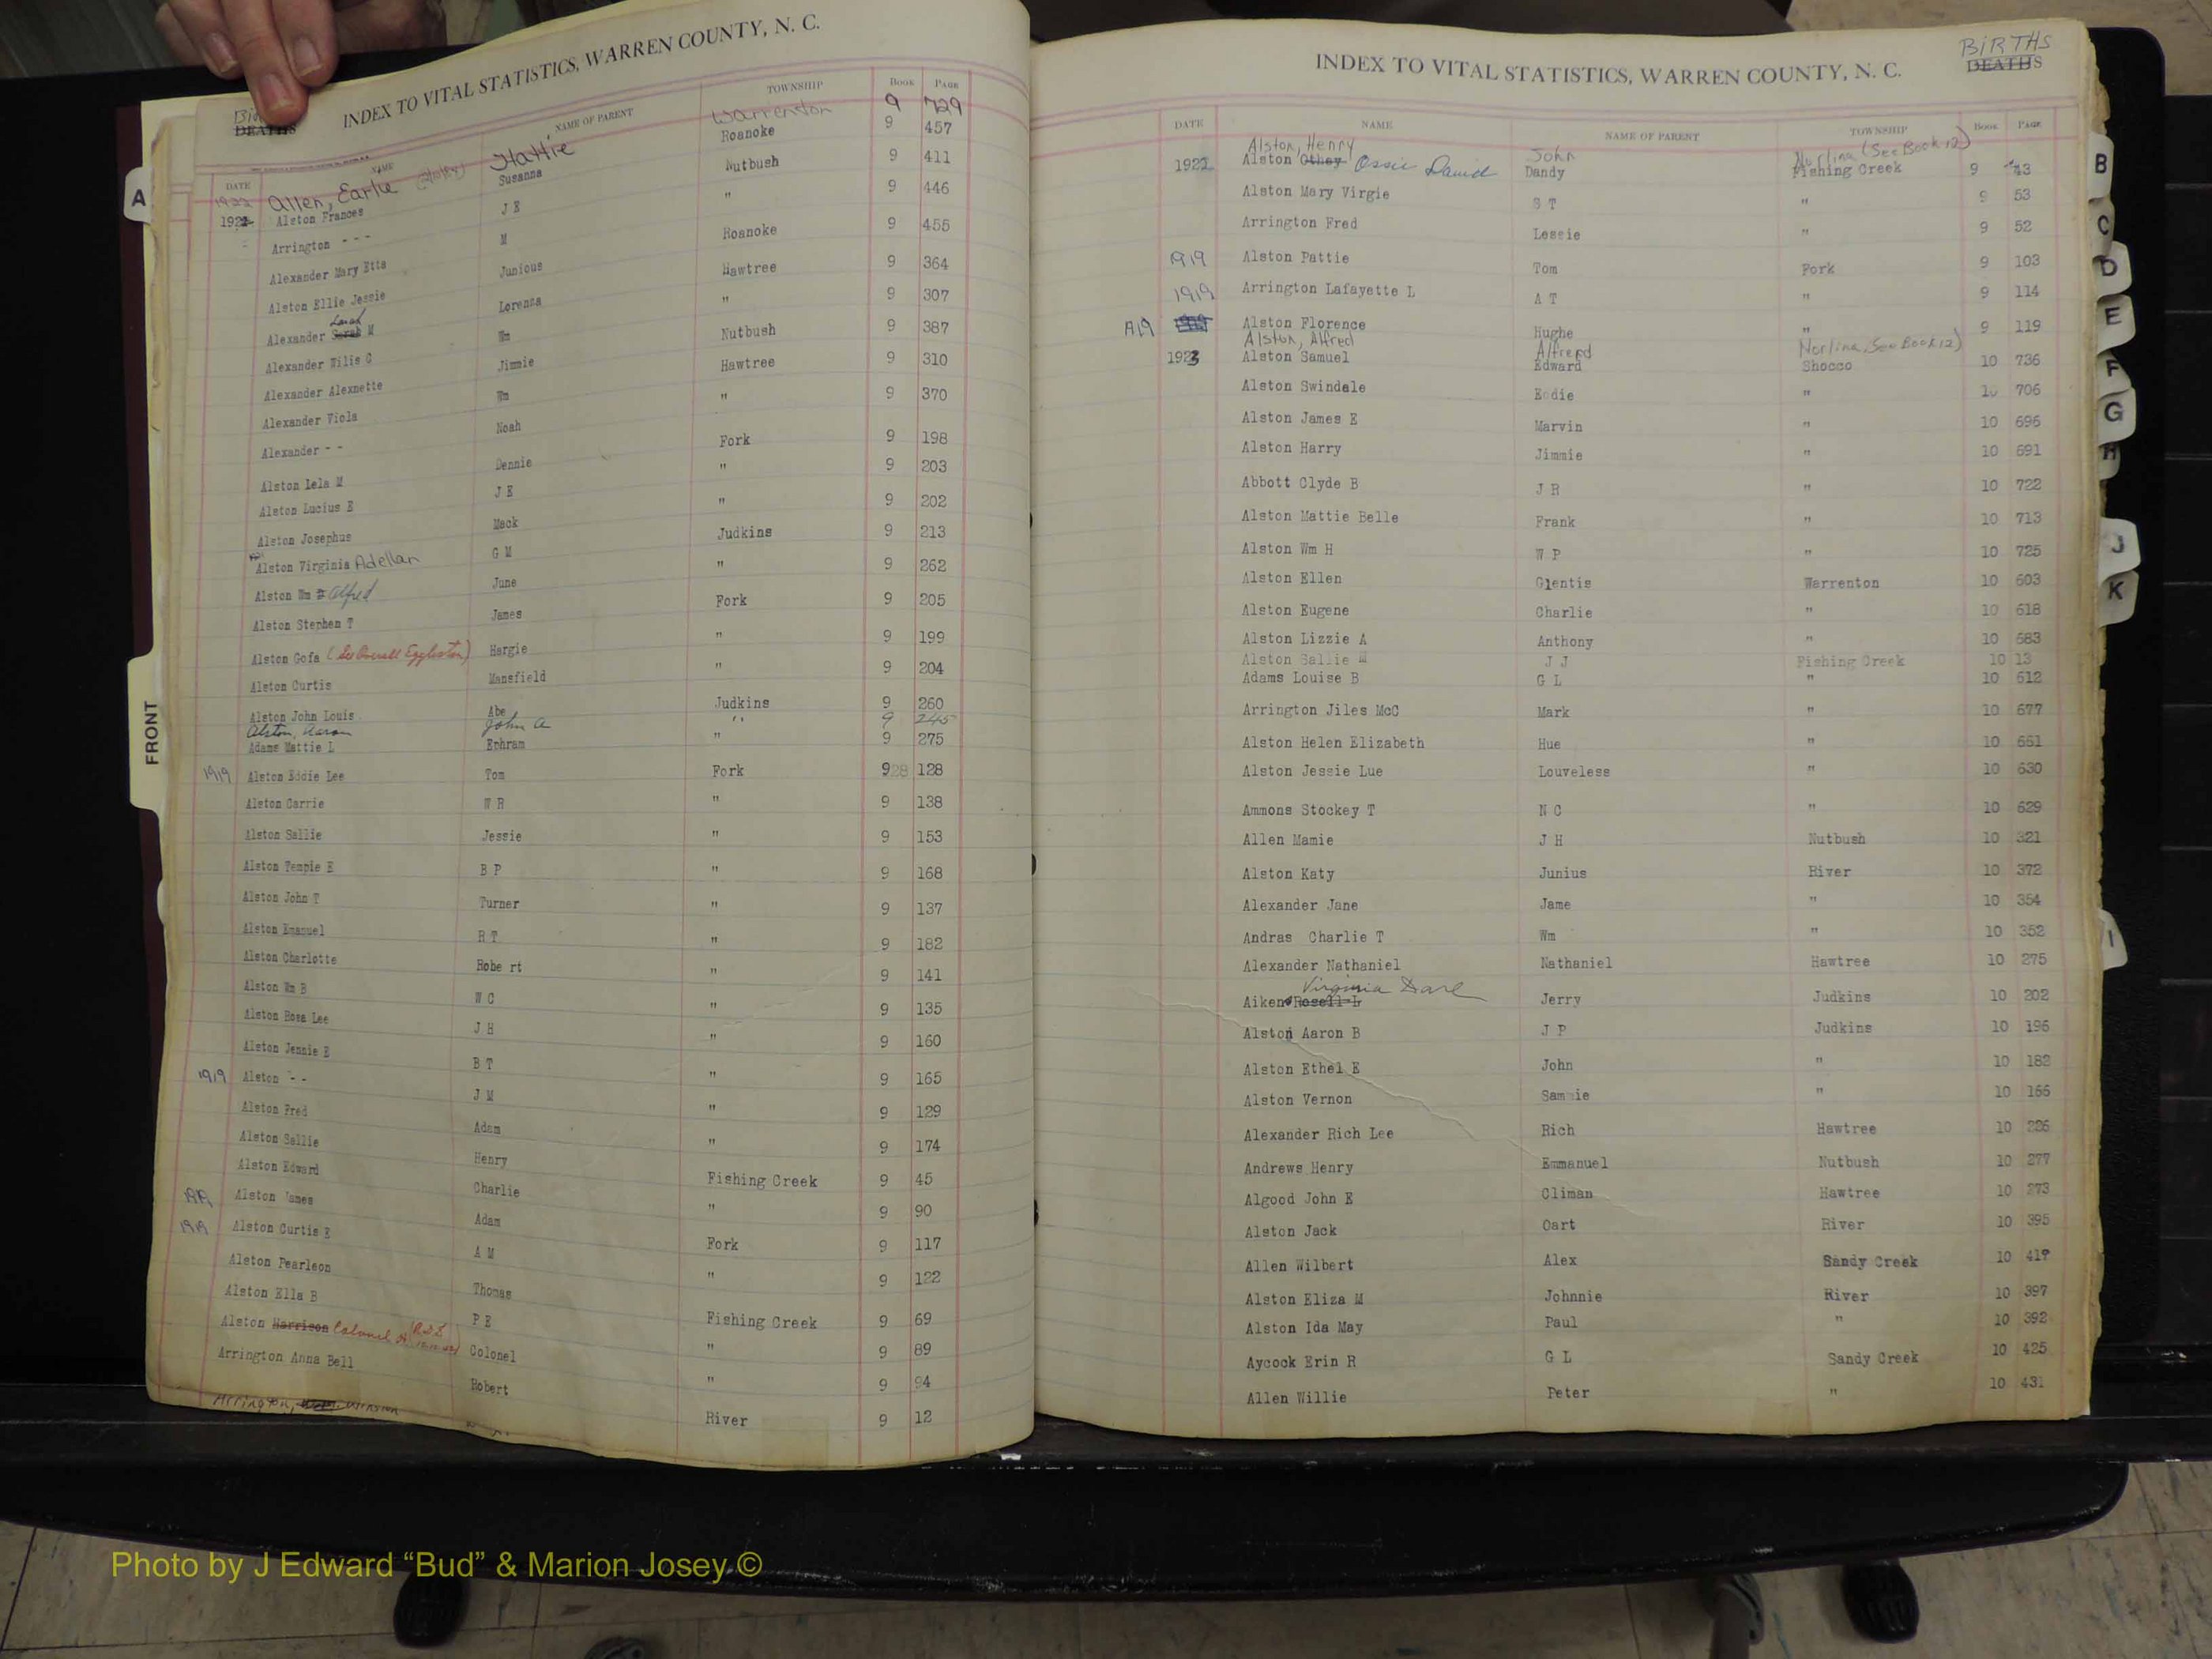 INDEX TO VITAL STATISTICS, WARREN COUNTY, N. C.
DEATHS
DATE NAME NAME OF PARENT TOWNSHIP BOOK PAGE
1922 Allen, Earlie Hattie Warrenton 9 729
192 Alston Frances Susanna Roanoke 9 457
Arrington - - - J E Nutbush 9 411
Alexander Mary Etta M " 9 446
Alston Ellie Jessie Junious Roanoke 9 455
Alexander Sarah M Lorenna Hawtree 9 364
Alexander Wilis C Wm " 9 307
Alexander Alexnette Jimmie Nutbush 9 387
Alexander Viola Wm Hawtree 9 310
Alexander - - Noah " 9 370
Alston Lela M Dennie Fork 9 198
Alston Lucius E J E " 9 203
Alston Josephus Mack " 9 202
Alston Virginia Adellar G M Judkins 9 213
Alston Wm Alfred June " 9 262
Alston Stephen T James Fork 9 205
Alston Gofa (See Overall Eggleston) Hargie " 9 199
Alston Curtis Mansfield " 9 204
Alston John Louis Abe Judkins 9 260
Alston, Aaron John A " 9 245
Adams Mattie L Ephram " 9 275
1919 Alston Eddie Lee Tom Fork 9 128
Alston Carrie W R " 9 138
Alston Sallie Jessie " 9 153
Alston Tempie E B P " 9 168
Alston John T Turner " 9 137
Alston Emanuel R T " 9 182
Alston Charlotte Robert " 9 141
Alston Wm B W C " 9 135
Alston Rosa Lee J H " 9 160
Alston Jennie E B T " 9 165
1919 Alston - - J M " 9 129
Alston Fred Adam " 9 174
Alston Sallie Henry Fishing Creek 9 45
Alston Edward Charlie " 9 90
1919 Alston James Adam Fork 9 117
1919 Alston Curtis E A M " 9 122
Alston Pearleon Thomas Fishing Creek 9 69
Alston Ella B P E " 9 89
Alston Harrison Colonel Colonel " 9 94
Arrington Anna Bell Robert River 9 12
Arrington, Winston
INDEX TO VITAL STATISTICS, WARREN COUNTY, N. C.
BIRTHS
DEATHS
DATE NAME NAME OF PARENT TOWNSHIP BOOK PAGE
Alston, Henry John Norlina (See Book 12)
1922 Alston Othey Ossie David Dandy Fishing Creek 9 43
Alston Mary Virgie S T " 9 53
Arrington Fred Lessie " 9 52
1919 Alston Pattie Tom Fork 9 103
1919 Arrington Lafayette L A T " 9 114
1919 Alston Florence Hughe " 9 119
Alston, Alfred Alfred Norlina, See Book 12)
1923 Alston Samuel Edward Shocco 10 736
Alston Swindale Eddie " 10 706
Alston James E Marvin " 10 696
Alston Harry Jimmie " 10 691
Abbott Clyde B J R " 10 722
Alston Mattie Belle Frank " 10 713
Alston Wm H W P " 10 725
Alston Ellen Glentis Warrenton 10 603
Alston Eugene Charlie " 10 618
Alston Lizzie A Anthony " 10 683
Alston Sallie M J J Fishing Creek 10 13
Adams Louise B G L " 10 612
Arrington Jiles McC Mark " 10 677
Alston Helen Elizabeth Hue " 10 661
Alston Jessie Lue Louveless " 10 630
Ammons Stockey T N C " 10 629
Allen Mamie J H Nutbush 10 321
Alston Katy Junius River 10 372
Alexander Jane Jame " 10 354
Andras Charlie T Wm " 10 352
Alexander Nathaniel Nathaniel Hawtree 10 275
Aiken Rosell L Virginia Dare Jerry Judkins 10 202
Alston Aaron B J P Judkins 10 196
Alston Ethel E John " 10 182
Alston Vernon Sammie " 10 166
Alexander Rich Lee Rich Hawtree 10 226
Andrews Henry Emmanuel Nutbush 10 277
Algood John E Climan Hawtree 10 273
Alston Jack Oart River 10 395
Allen Wilbert Alex Sandy Creek 10 419
Alston Eliza M Johnnie River 10 397
Alston Ida May Paul " 10 392
Aycock Erin R G L Sandy Creek 10 425
Allen Willie Peter " 10 431
A
FRONT
B
C
D
E
F
G
H
J
K
I
Photo by J Edward “Bud” & Marion Josey ©